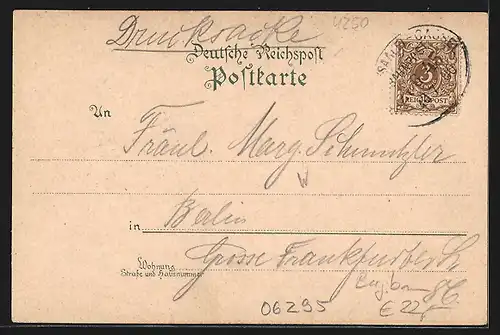 Drucksache
4250
Deutsche Reichspost
Postkarte
3
REICHSPOST
An
Fräul. Marg. Schnitzler
in Berlin
Wohnung
Straße und Hausnummer
Grosse Frankfurterstr.
06295
€ 22,-